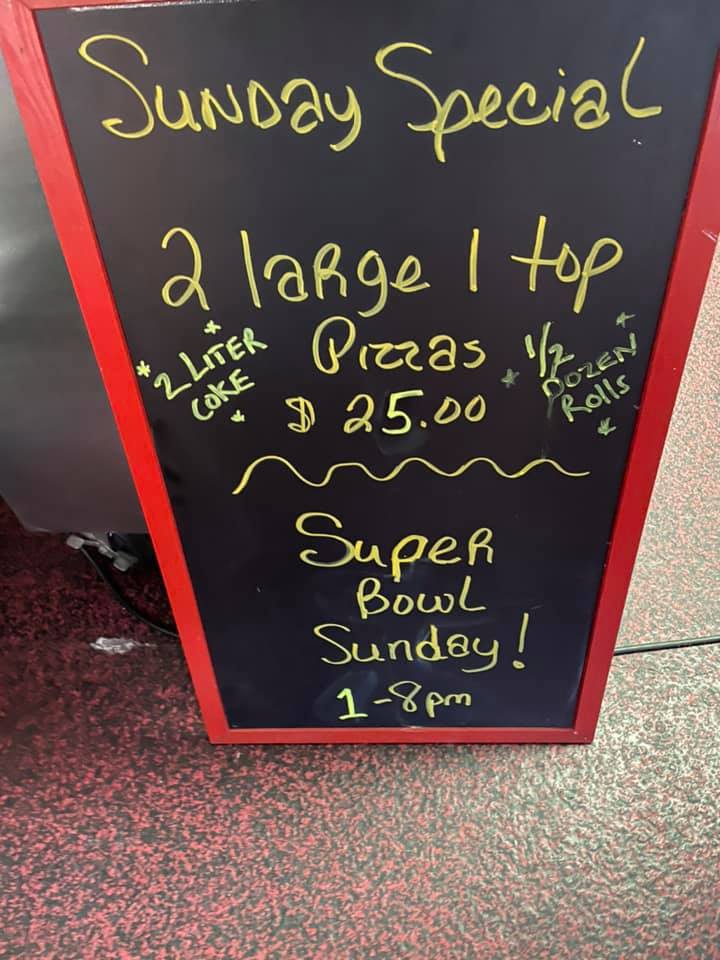 Sunday Special
2 large 1 top
Pizzas
* 2 LITER COKE *
* 1/2 DOZEN Rolls *
$ 25.00
Super
Bowl
Sunday!
1-8pm